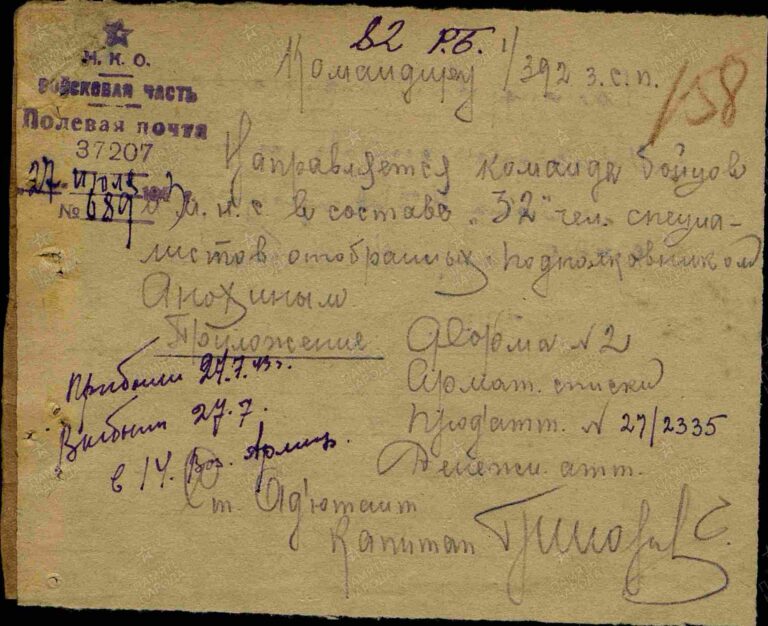 82 Р.Б.
Командиру 1/392 з.с.п.
158
Н.К.О.
ВОЙСКОВАЯ ЧАСТЬ
Полевая почта
37207
27 июля 1943
№ 689
Направляется команда бойцов
и м.н.с. в составе "32" чел. специа-
листов отобранных подполковником
Анохиным
Приложение Форма N2
Армат. списки
Прод'атт. N 27/2335
Денежн. атт.
Прибыли 27.7.43г.
Выбыли 27.7.
в 14. Воз. Армию.
Ст. Ад'ютант
Капитан